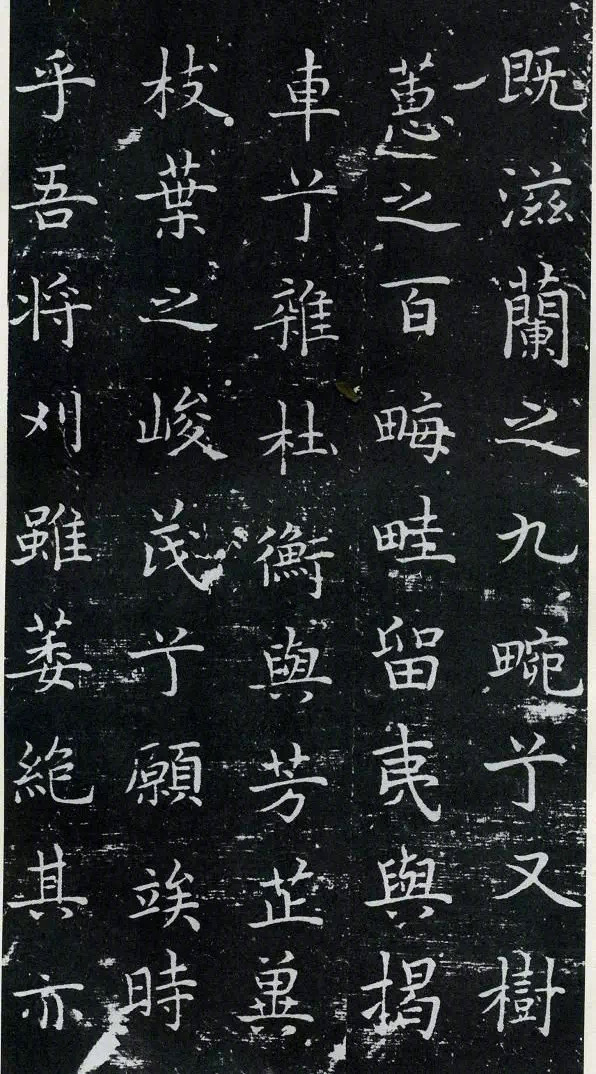 既滋蘭之九畹兮又樹
蕙之百畮畦留夷與揭
車兮雜杜衡與芳芷冀
枝葉之峻茂兮願竢時
乎吾将刈雖萎絶其亦